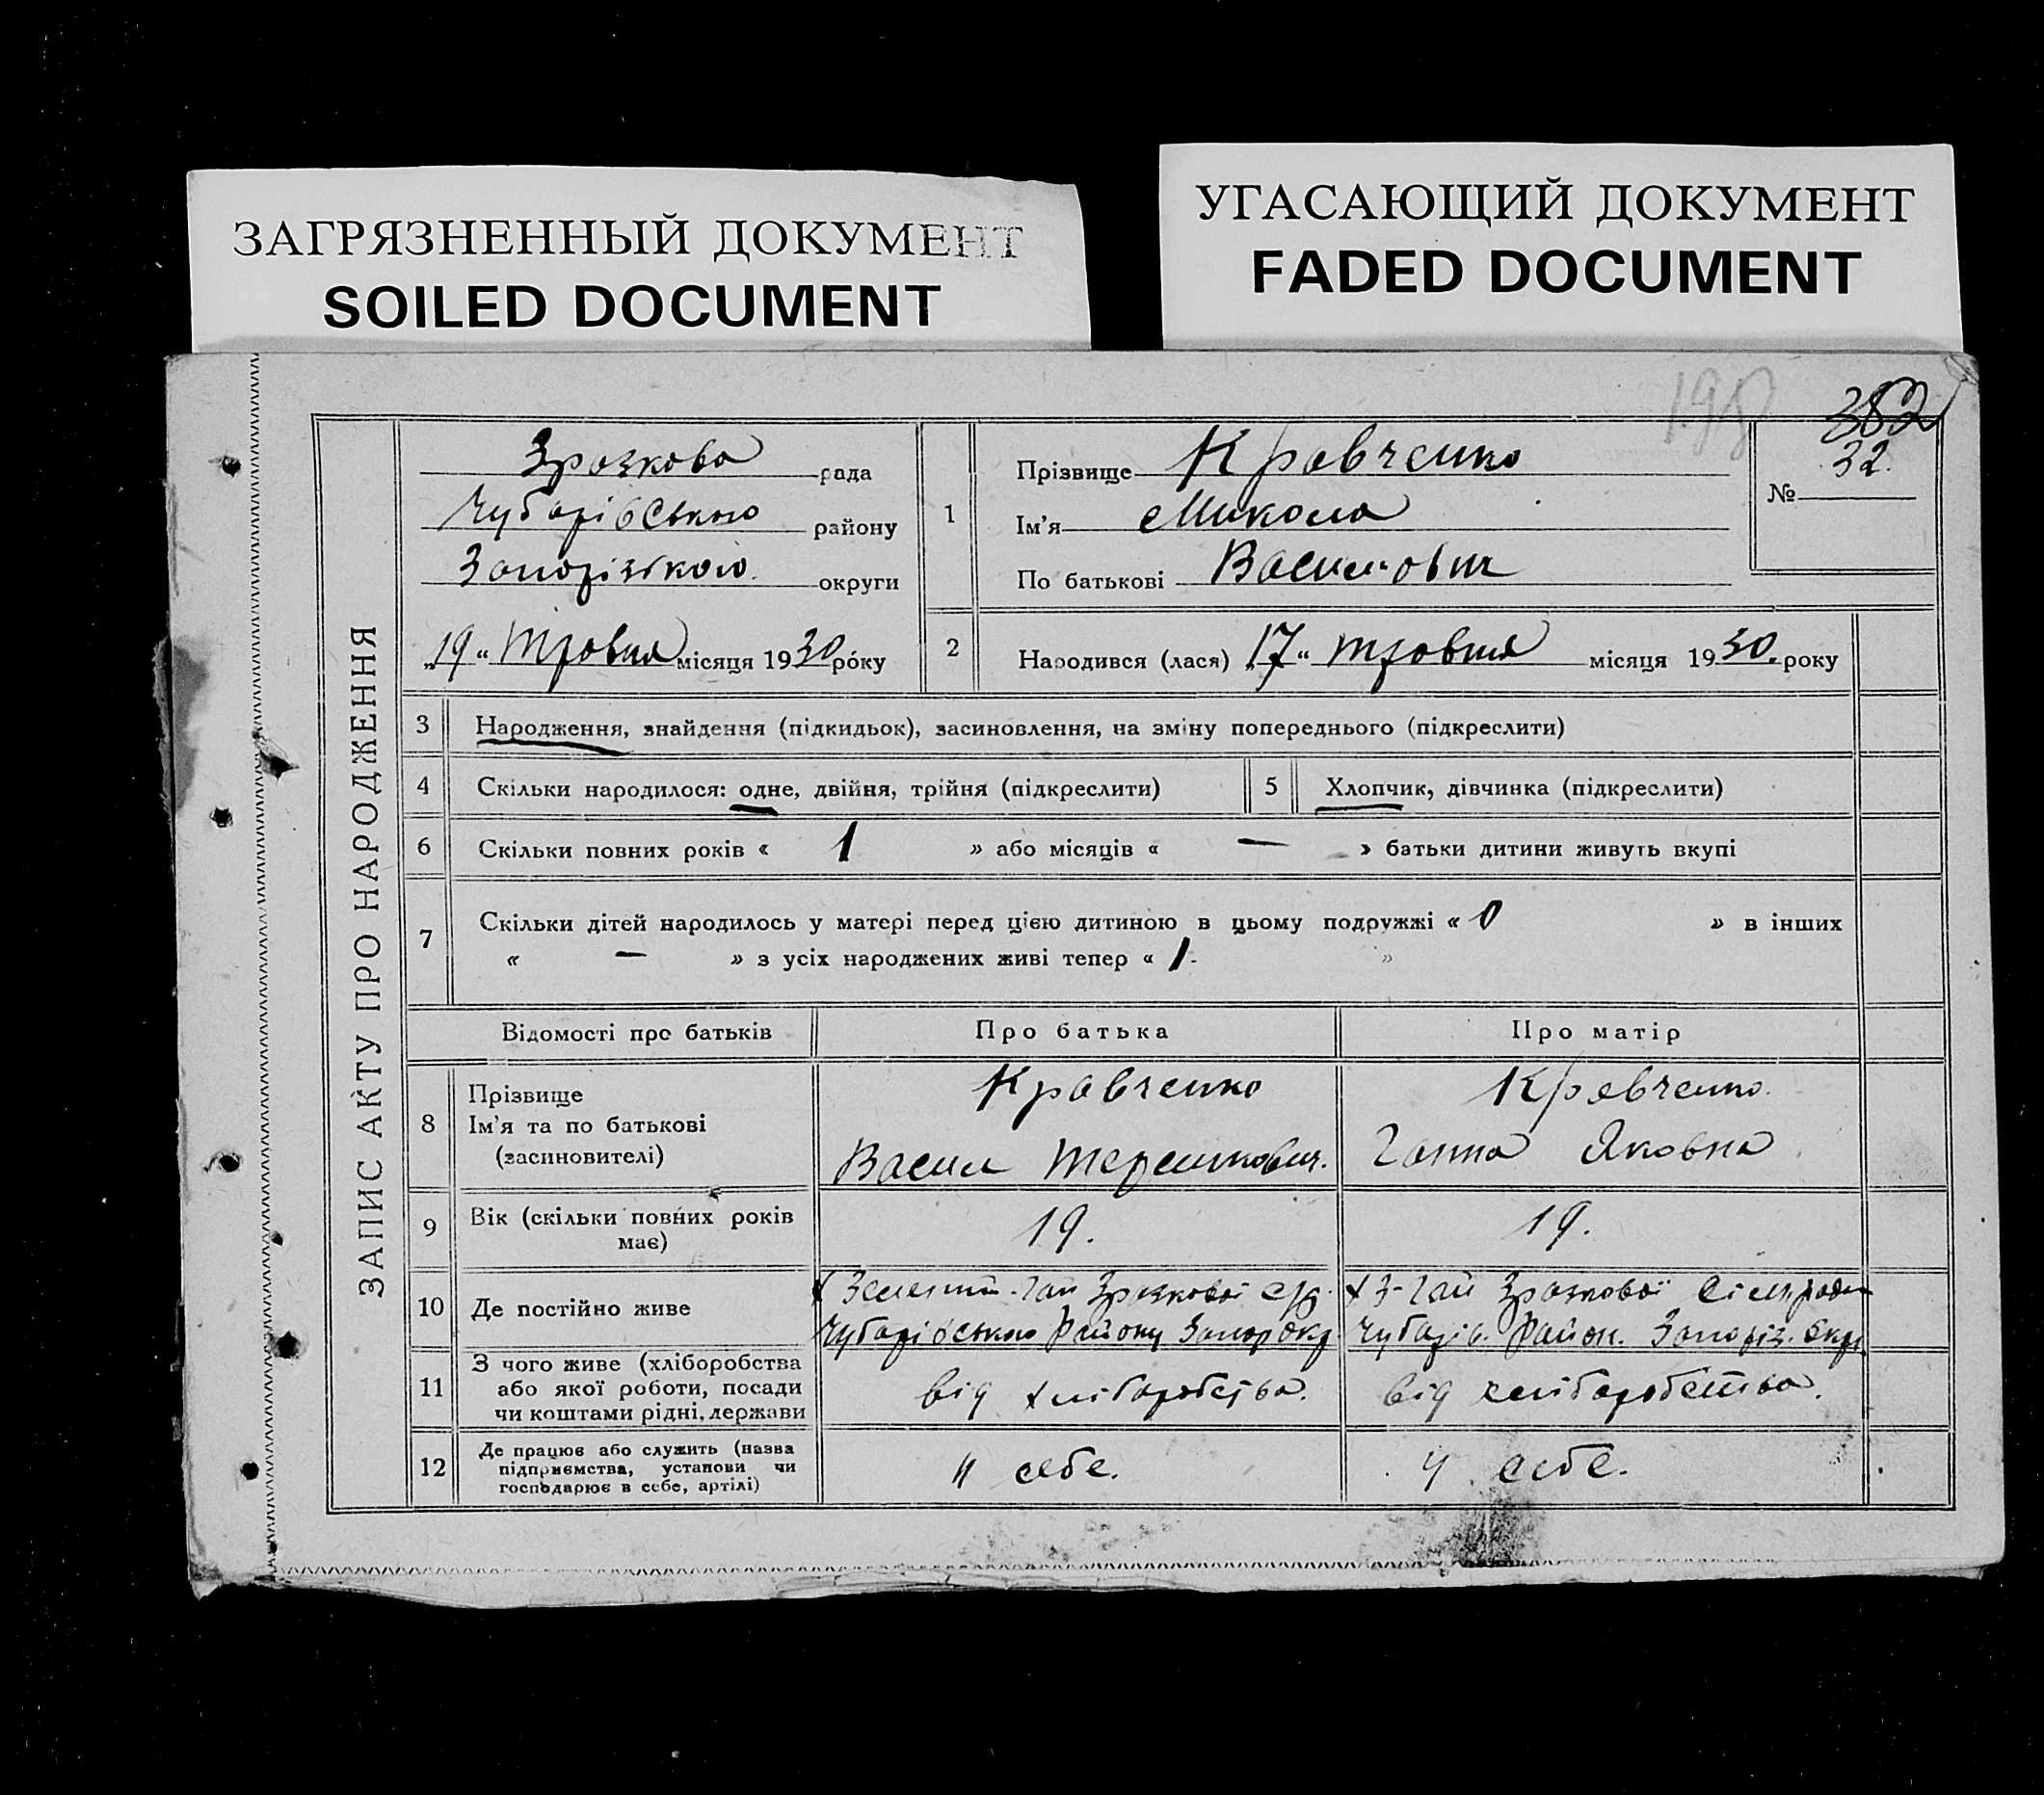 ЗАГРЯЗНЕННЫЙ ДОКУМЕНТ
SOILED DOCUMENT
УГАСАЮЩИЙ ДОКУМЕНТ
FADED DOCUMENT
198
382
ЗАПИС АКТУ ПРО НАРОДЖЕННЯ
Зразкова рада
Чубарівського району
Запорізького округи
„19“ Травня місяця 1930 року
1 Прізвище Кравченко
Ім'я Микола
По батькові Васильович
№ 32.
2 Народився (лася) „17“ травня місяця 1930. року
3 Народження, знайдення (підкидьок), засиновлення, на зміну попереднього (підкреслити)
4 Скільки народилося: одне, двійня, трійня (підкреслити) 5 Хлопчик, дівчинка (підкреслити)
6 Скільки повних років « 1 » або місяців « — » батьки дитини живуть вкупі
7 Скільки дітей народилось у матері перед цією дитиною в цьому подружжі « 0 » в інших
« — » з усіх народжених живі тепер « 1. »
Відомості про батьків Про батька Про матір
8 Прізвище Кравченко Кравченко.
Ім'я та по батькові
(засиновителі) Васил Ганна Яковна
9 Вік (скільки повних років 19. 19.
має)
10 Де постійно живе
х Зелений-Гай Зразкової с/р. х З-Гай Зразкової Сільради
Чубарівського Району Запор окр. Чубарів. Район. Запоріз. окр.
11 З чого живе (хліборобства
або якої роботи, посади від хліборобства. від хліборобства.
чи коштами рідні, держави
12 Де працює або служить (назва
підприємства, установи чи у себе. у себе.
господарює в себе, артілі)